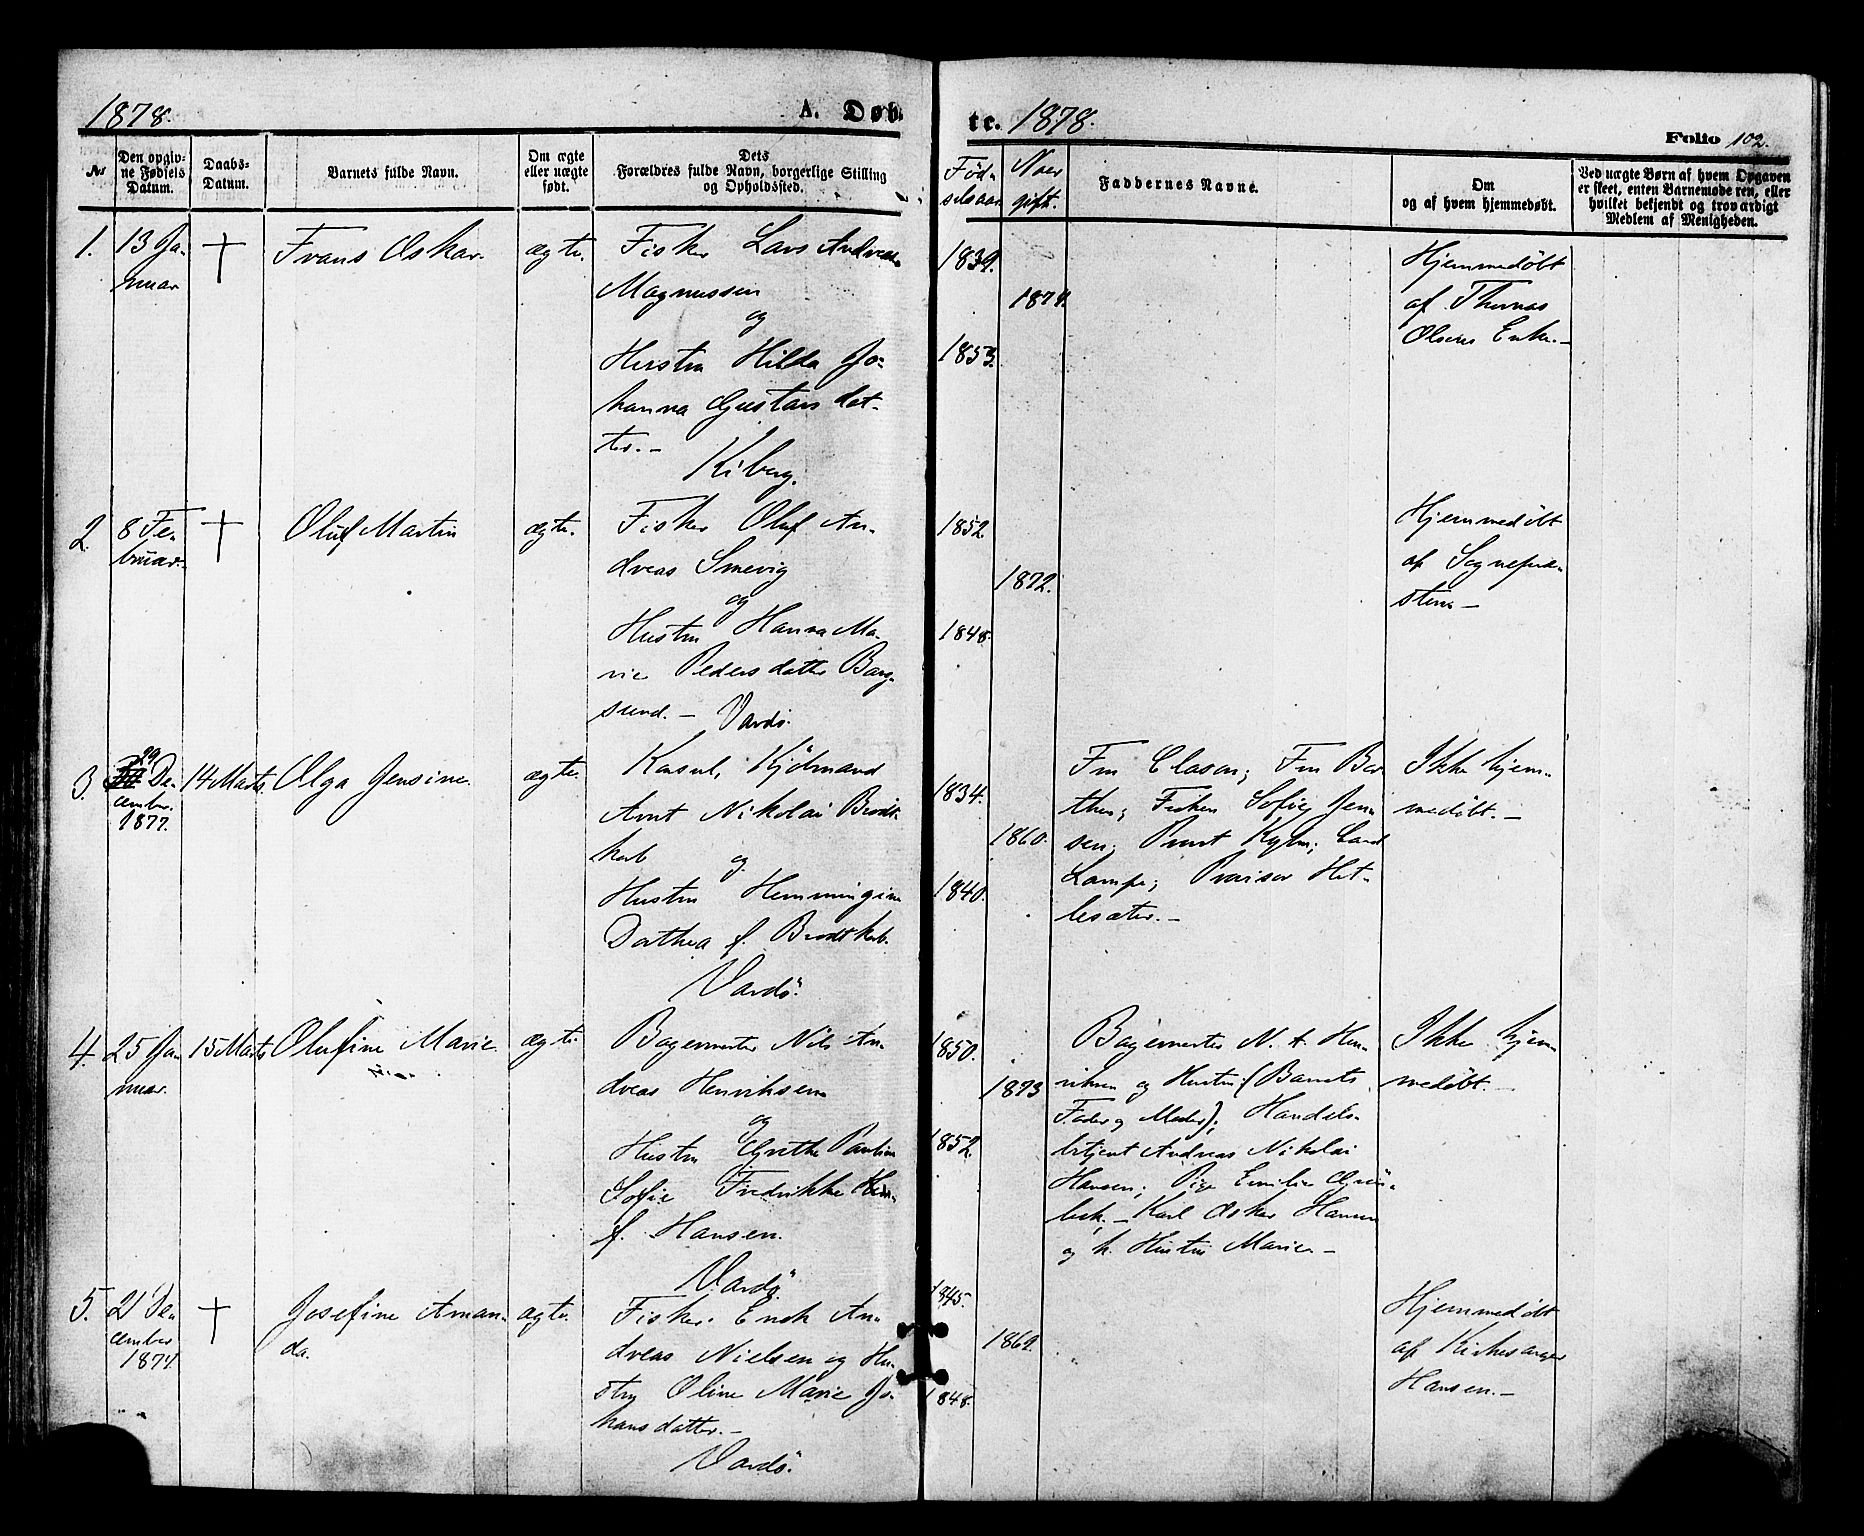 1878.
A. Døb-
te. 1878.
Folio 102.
No
Den opgiv-
ne Fødsels
Datum.
Daabs-
Datum.
Barnets fulde Navn.
Om ægte
eller uægte
født.
Dets
Forældres fulde Navn, borgerlige Stilling
og Opholdssted.
Fød-
selsaar
Naar
gift.
Faddernes Navne.
Om
og af hvem hjemmedøbt.
Ved uægte Børn af hvem Opgaven
er skeet, enten Barnemoderen, eller
hvilket bekjendt og troværdigt
Medlem af Menigheden.
1.
13 Ja-
nuar
†
Frans Oskar.
ægte.
Fisker Lars Andreas
Magnussen
og
Hustru Hilda Jo-
hanna Gustavsdat-
ter.-
Kiberg.
1839.
1874.
1853.
Hjemmedøbt
af Thomas
Olsens Enke.-
2.
8 Fe-
bruar.
†
Oluf Martin
ægte.
Fisker Oluf An-
dreas Smevig
og
Hustru Hanna Ma-
rie Pedersdatter Barg-
sund.- Vardö.
1852.
1872.
1848.
Hjemmedøbt
af Sognepræ-
sten.-
3.
29
De-
cember.
1877.
14 Marts.
Olga Jensine.
ægte.
Konsul, Kjöbmand
Arnt Nikolai Brodt-
korb og
Hustru Hemmingine
Dorthea f. Brodtkorb.
Vardö.
1834.
1860.
1840.
Fru Clason; Fru Bar-
then; Frøken Sofie Jen-
sen; Provst Kylm; Cand
Lampe; Provisor Het-
lesæter.-
Ikke hjem-
medøbt.-
4.
25 Ja-
nuar.
15 Marts
Olufine Marie.
ægte.
Bagermester Nils An-
dreas Henriksen
og
Hustru Grethe Pauline
Sofie Fredrikke
f. Hansen.
Vardö.
1850.
1873
1852.
Bagermester N. A. Hen-
riksen og Hustru (Barnets
Fader og Moder); Handels-
betjent Andreas Nikolai
Hansen; Pige Emilie Grön-
beck.- Karl Oskar Hansen
og h. Hustru Marie.-
Ikke hjem-
medøbt.-
5.
21 De-
cember
1877.
†
Josefine Aman-
da.
ægte.
Fisker. Enok An-
dreas Nielsen og Hu-
stru Oline Marie Jo-
hansdatter.-
Vardö.
1845.
1869.
1848.
Hjemmedøbt
af Kirkesanger
Hansen.-